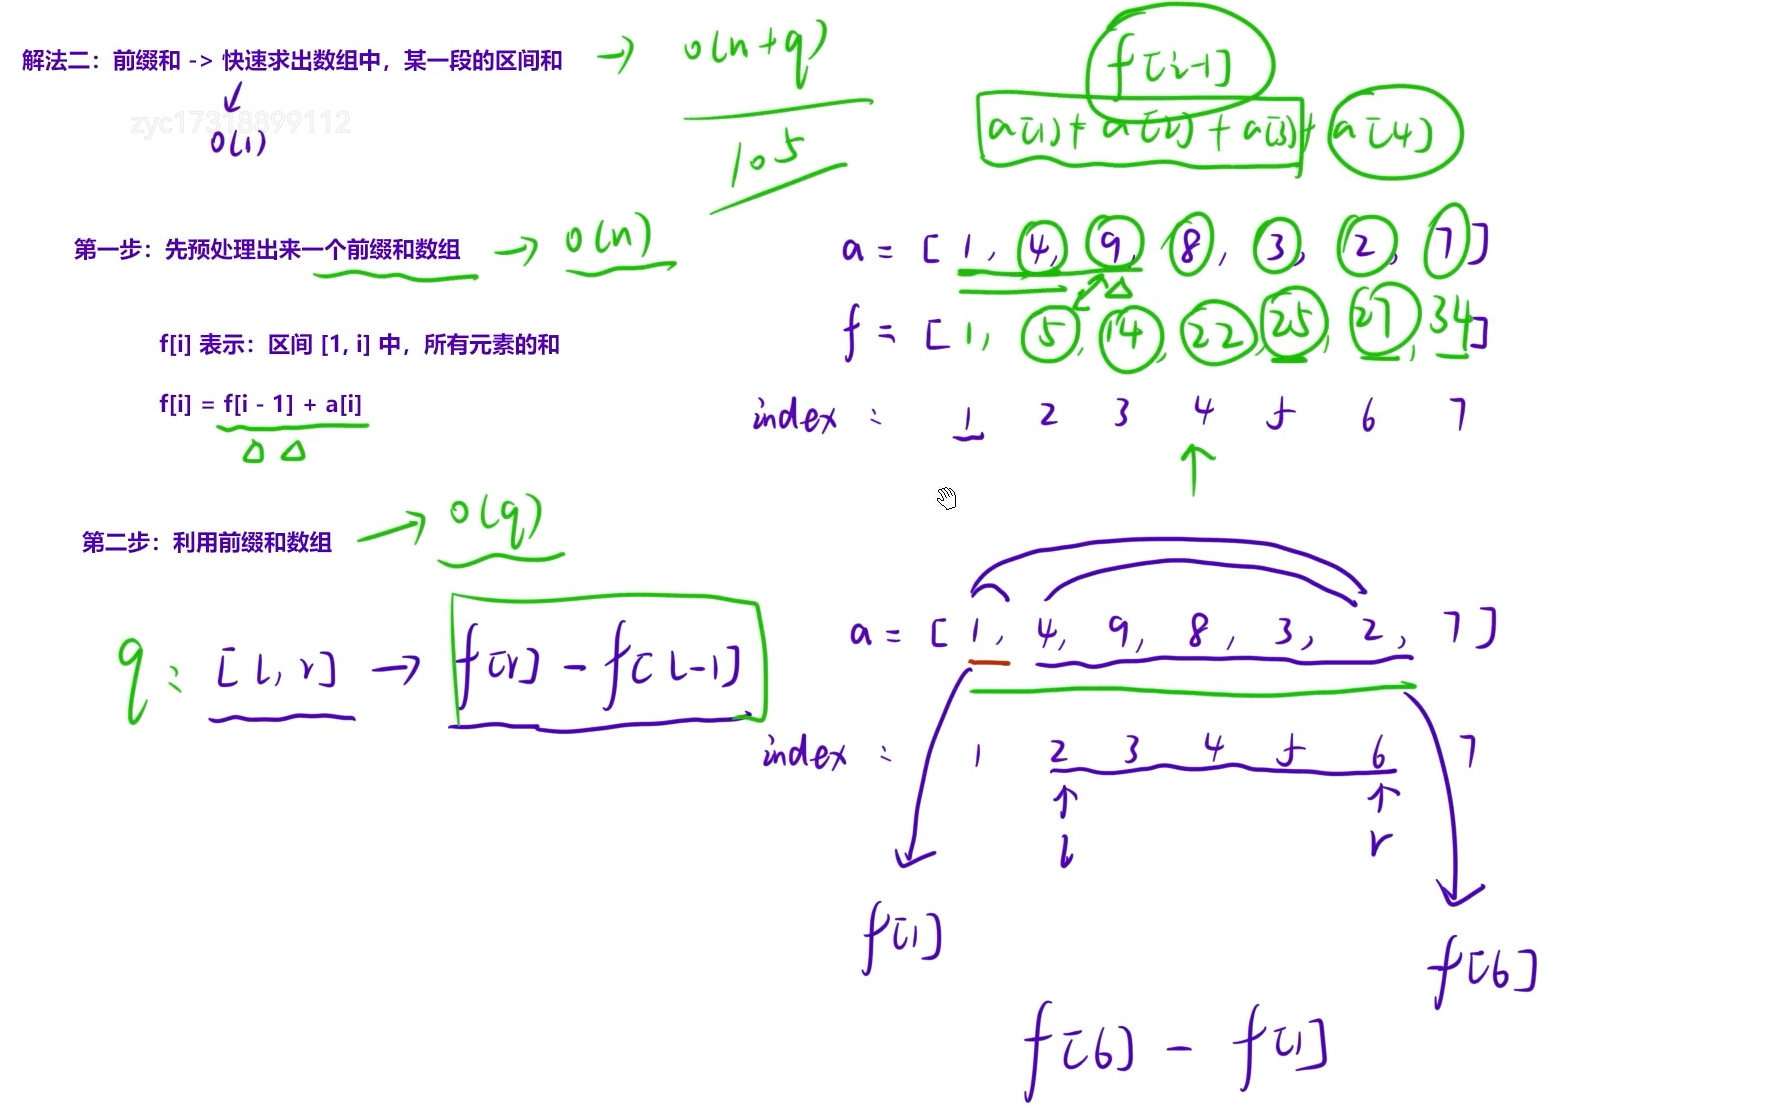 解法二：前缀和 -> 快速求出数组中，某一段的区间和 → O(n+q)
O(1)
zyc17318899112
10^5
f[i-1]
a[1] + a[2] + a[3] + a[4]
第一步：先预处理出来一个前缀和数组 → O(n)
a = [ 1, 4, 9, 8, 3, 2, 7 ]
f = [ 1, 5, 14, 22, 25, 27, 34 ]
index : 1 2 3 4 5 6 7
f[i] 表示：区间 [1, i] 中，所有元素的和
f[i] = f[i - 1] + a[i]
第二步：利用前缀和数组 → O(q)
q: [l, r] → f[r] - f[l-1]
a = [ 1, 4, 9, 8, 3, 2, 7 ]
index : 1 2 3 4 5 6 7
l r
f[1]
f[6]
f[6] - f[1]